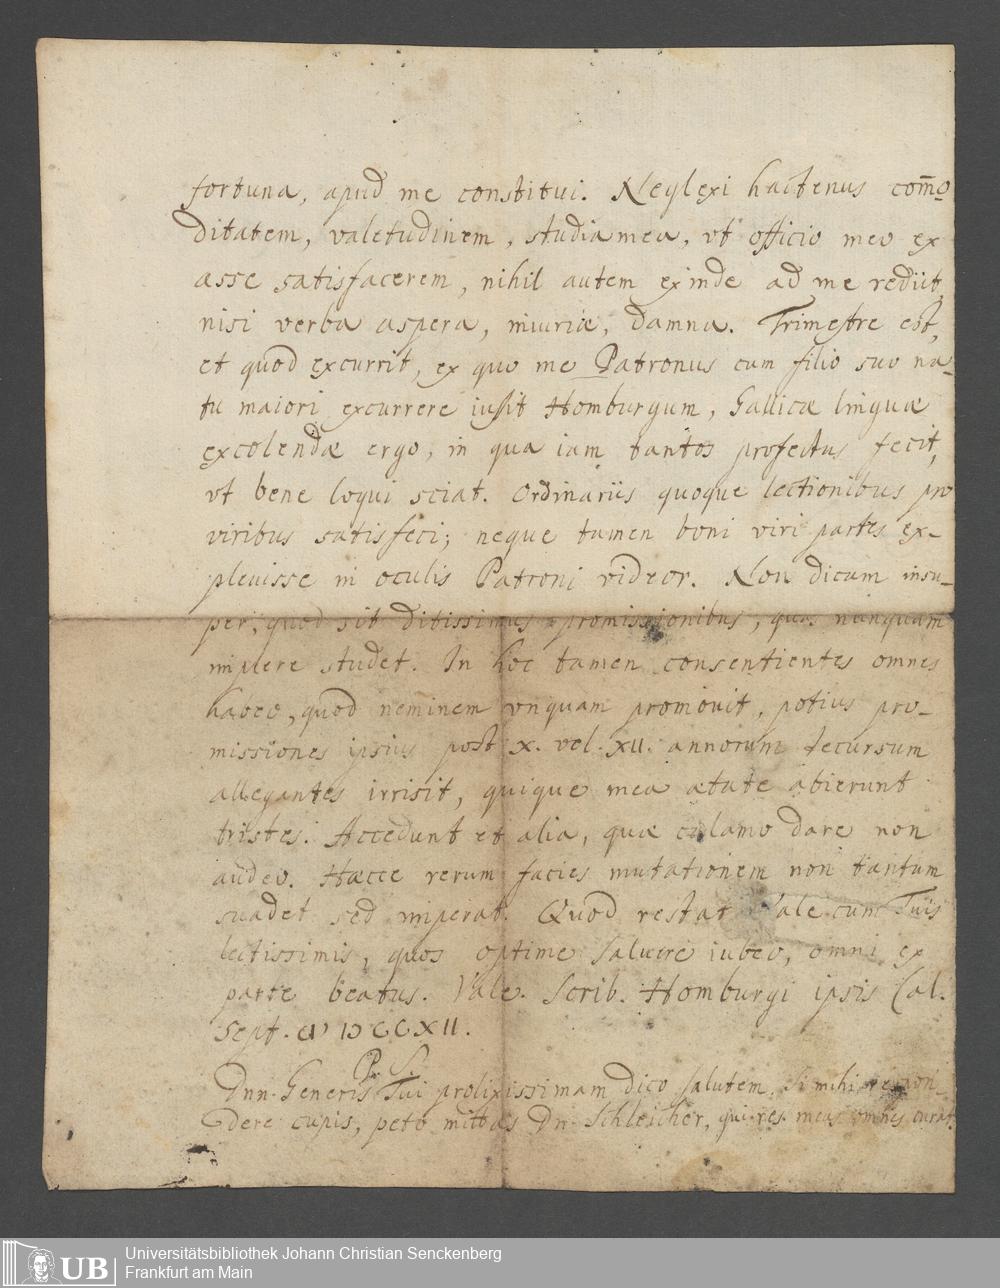 fortuna, apud me constitui. Neglexi hactenus com̅o-
ditatem, valetudinem, studia mea, vt officio meo ex
asse satisfacerem, nihil autem exinde ad me rediit,
nisi verba aspera, iniuriæ, damna. Trimestre est,
et quod excurrit, ex quo me Patronus cum filio suo na-
tu maiori excurrere iussit Homburgum, Gallicæ linguæ
excolendæ ergo, in qua iam tantos profectus fecit,
vt bene loqui sciat. Ordinariis quoque lectionibus pro
viribus satisfeci; neque tamen boni viri partes ex-
pleuisse in oculis Patroni videor. Non dicam insu-
per, quod sit ditissimus promissionibus, quas nunquam
implere studet. In hoc tamen consentientes omnes
habeo, quod neminem vnquam promouit, potius pro-
missiones ipsius post X. vel XII. annorum decursum
allegantes irrisit, quique mea ætate abierunt
tristes. Accedunt et alia, quæ calamo dare non
audeo. Hæcce rerum facies mutationem non tantum
suadet sed imperat. Quod restat Vale cum Tuis
lectissimis, quos optime saluere iubeo, omni ex
parte beatus. Vale. Scrib. Homburgi ipsis Cal.
Sept. CIↃ IↃCCXII.
P. S.
Dnn. Generis Tui prolixissimam dico salutem. Si mihi respon-
dere cupis, peto mittas Dn. Schleicher, qui res meas omnes curat.
Universitätsbibliothek Johann Christian Senckenberg
Frankfurt am Main
UB